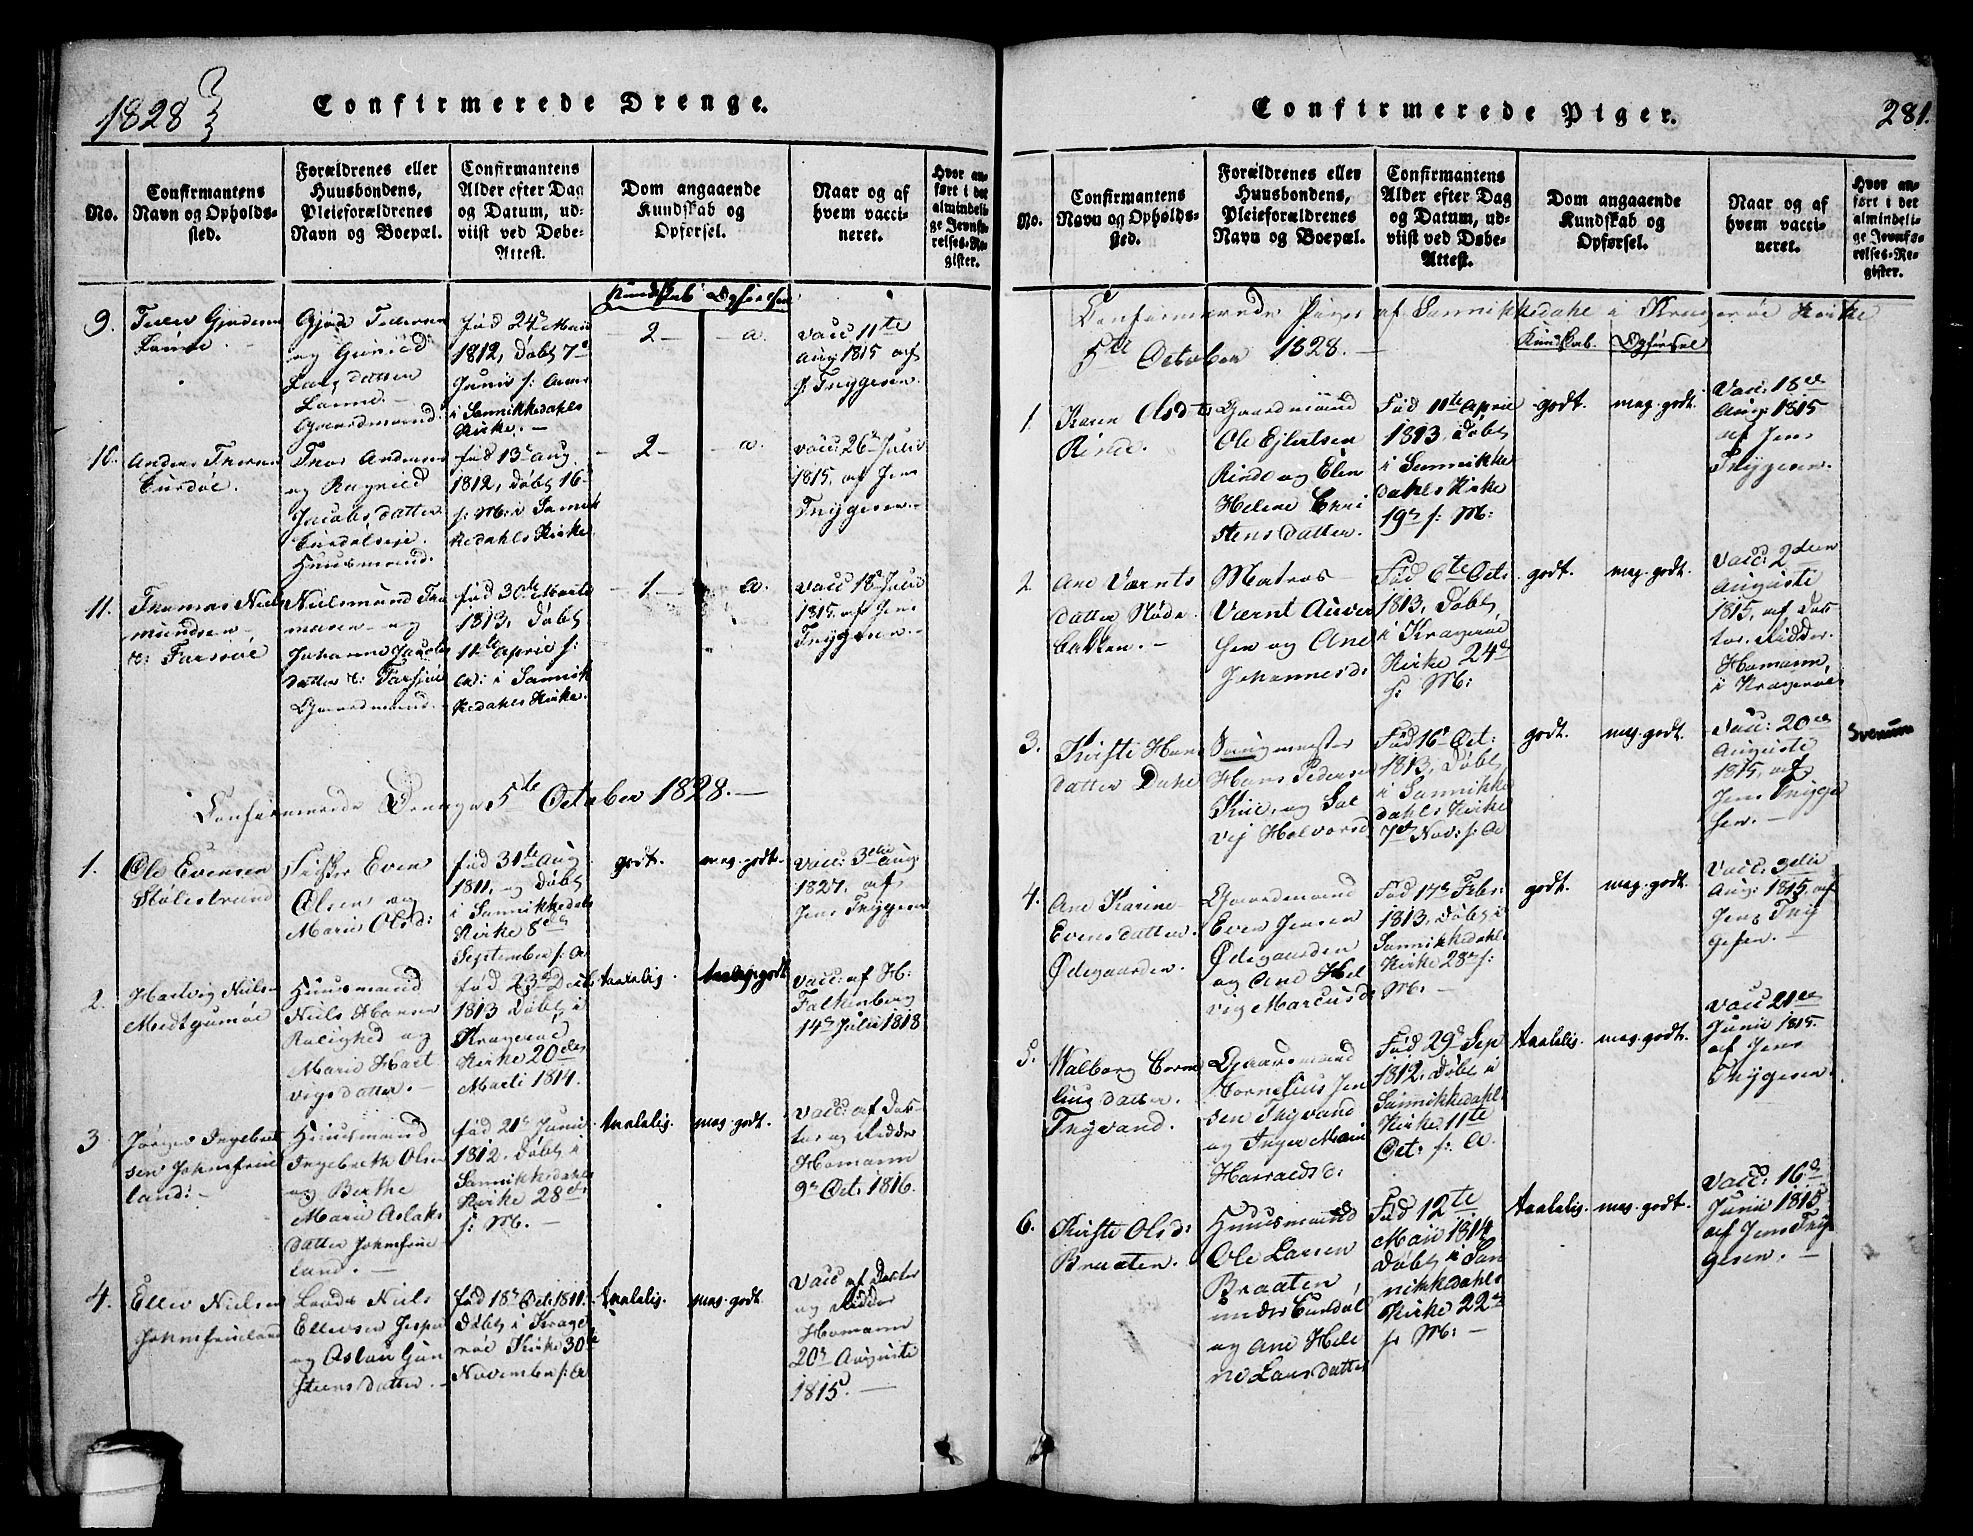 1828
Confirmerede Drenge.
No.
Confirmantens
Navn og Opholds-
sted.
Forældrenes eller
Huusbondens,
Pleieforældrenes
Navn og Boepæl.
Confirmantens
Alder efter Dag
og Datum, ud-
viist ved Døbe-
Attest.
Dom angaaende
Kundskab og
Opførsel.
Naar og af
hvem vacci-
neret.
Hvor an-
ført i det
almindeli-
ge Jevnfø-
relses-Re-
gister.
Kundskab Opførsel
9.
Lønne
og Gunild
Larsdatter
Lønne.
Gaardmand.
Fød 24de Maii
1812, Døbt 7de
Junii f: Ann:
i Sannikkedahls
Kirke.
2
a.
Vacc 11te
Aug 1815 af
J: Trÿgesen
10.
Anders
Thor Anderse
og Ragnild
Jacobsdatter
Huusmand.
fød 13de Aug
1812, Døbt 16de
f: M: i Sannik
kedahls Kirke
2
a.
vacc: 26de Julii
1815, af Jens
Trÿgesen
11.
Thomas Niels
mundsen
Nielsmund Tho
masen og
Johanne Jacobs
datter
Gaardmand.
fød 30te Martii
1813, Døbt
11te April f:
a: i Sannik
kedahls Kirke
1
a.
vacc 18de Julii
1815 af Jens
Trÿgesen
Confirmerede Drenge 5te October 1828.
1.
Ole Evensen
Stølestrand
Fisker Even
Olsen og
Marie Olsd:
fød 31te Aug
1811, og Døbt
i Sannikkedals
Kirke 8de
September f: A
godt.
meg. godt.
vacc: 3die Aug.
1827. af
Jens Trÿgesen
2.
Hartvig Nielsen
Midtgumøe
Huusmand
Niels Hansen
Rolighed og
Marie Hart
vigsdatter.
fød 23de Decb
1813 Døbt i
Kragerøe
Kirke 20de
Martii 1814.
Taalelig.
Taalelig godt
Vacc: af H:
Falkenberg
14de Julii 1818
3
Jørgen Ingebret
sen Johnsfrue
land.
Huusmand
Ingebreth Olsen
og Berthe
Marie Aslaks
datter Johnsfrue
land.
fød 21de Junii
1812. Døbt i
Sannikkedahls
Kirke 28de
f: M.
Taalelig.
meg. godt.
vacc: af Doc-
tor og Ridder
Homann
9de Oct: 1816.
4.
Ellev Nielsen
Johnsfrueland
Lods Niels
Ellevsen Jesper
og Aslau Gun
steensdatter.
fød 18de Oct: 1811.
Døbt i Krage
røe Kirke 30te
November f: A
Taalelig.
meg. godt
Vacc af Doctor
og Ridder
Homann
20de Augusti
1815.
281.
Confirmerede Piger.
No.
Confirmantens
Navn og Opholds-
sted.
Forældrenes eller
Huusbondens,
Pleieforældrenes
Navn og Boepæl.
Confirmantens
Alder efter Dag
og Datum, ud-
viist ved Døbe-
Attest.
Dom angaaende
Kundskab og
Opførsel.
Naar og af
hvem vacci-
neret.
Hvor an-
ført i det
almindeli-
ge Jevnfø-
relses-Re-
gister.
Confirmerede Piger af Sannikkedahl i Kragerøe Kirke
5te October 1828.
Kundskab. Opførsel
1.
Karen Olsd:
Rinde.
Gaardmand
Ole Ejlertsen
Rinde og Elen
Helene Chri
stensdatter.
Fød 11te April
1813, Døbt
i Sannikke
dahls Kirke
19de f: M:
godt.
meg. godt.
Vacc: 18de
Aug: 1815
af Jens
Trÿgesen.
2
Ane Værnts
datter Røde
bakken.
Matros
Værnt Auver
sen og Ane
Johannesd:
Fød 6te Oct:
1813, Døbt
i Kragerøe
Kirke 24de
f: M:
godt.
meg. godt.
Vacc: 2den
Augusti
1815, af Doc-
tor. Ridder
Homann,
i Kragerøe
3.
Kirsti Hans
datter Dahl
Saugmester
Hans Pedersen
Kiil, og Sol
vej Halvorsd
Fød 16de Oct:
1813, Døbt
i Sannikke
dahls Kirke
7de Nov: f: A
godt.
meg. godt.
Vacc: 20de
Augusti
1815, af
Jens Trÿge
sen.
Svenum
4.
Ane Karine
Evensdatter
Ødegaarden.
Gaardmand
Even Jensen
Ødegaarden
og Ane Hel
vig Marcusd:
Fød 17de Febr:
1813, Døbt i
Sannikkedahls
Kirke 28de f:
M:
godt.
meg. godt.
Vacc: 3die
Aug: 1815, af
Jens Trÿ
gesen.
5.
Walborg Corne
liusdatter.
Trÿvand.
Gaardmand
Cornelius Jen
sen Trÿvand
og Inger Marie
Haraldsd:
Fød 29de Sep
1812, Døbt i
Sannikkedahls
Kirke 11te
Oct: f: A.
Taalelig.
meg. godt.
Vacc 21de
Junii 1815.
af Jens
Trÿgesen.
6.
Kirsti Olsd:
Braaten.
Huusmand
Ole Larsen
Braaten,
under
og Ane Hele
ne Larsdatter
Fød 12te
Maii 1814
Døbt i San
nikkedahls
Kirke 22de
f: M:
Taalelig.
meg. godt.
Vacc: 16de
Junii 1815
af Jens Trÿ
gesen.